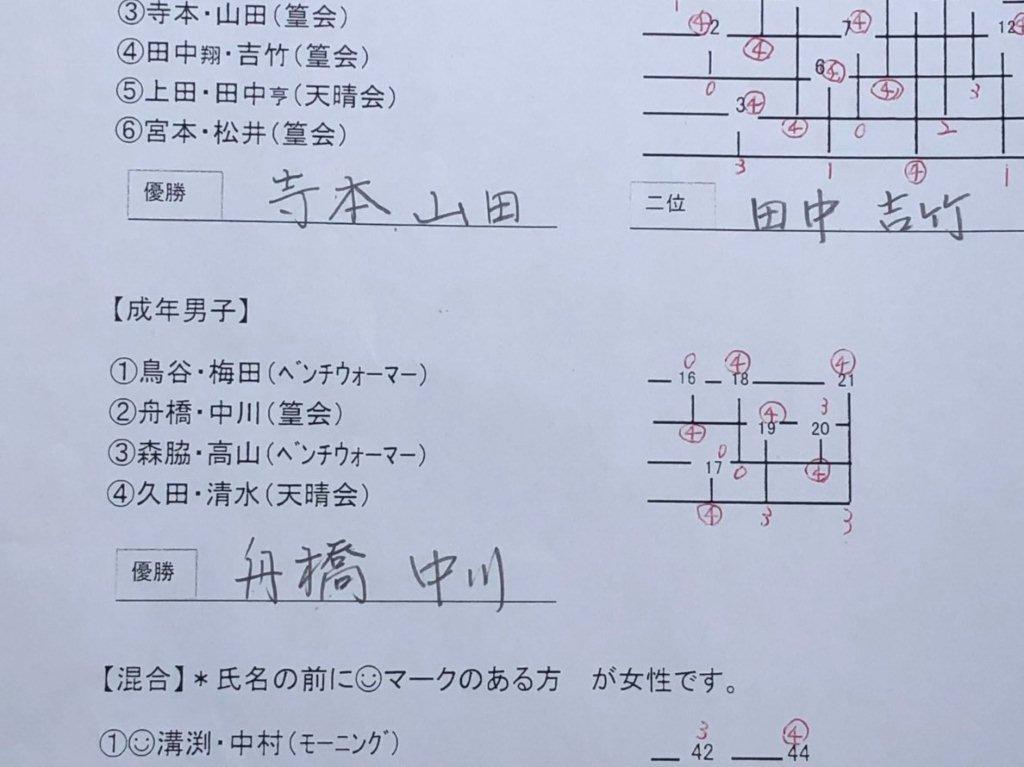 ③寺本・山田(篁会)
④田中翔・吉竹(篁会)
⑤上田・田中亨(天晴会)
⑥宮本・松井(篁会)
④2 7④ 12④
④
6④
0 ④ 3
3④
④ 0 2
3 1 ④ 1
優勝 寺本 山田
二位 田中 吉竹
【成年男子】
①鳥谷・梅田(ﾍﾞﾝﾁｳｫｰﾏｰ)
②舟橋・中川(篁会)
③森脇・高山(ﾍﾞﾝﾁｳｫｰﾏｰ)
④久田・清水(天晴会)
0 ④ ④
16 18 21
④ 3
④ 19 20
0
17 0 ④
④ 3 3
優勝 舟橋 中川
【混合】*氏名の前に☺マークのある方 が女性です。
①☺溝渕・中村(ﾓｰﾆﾝｸﾞ)
3 ④
42 44